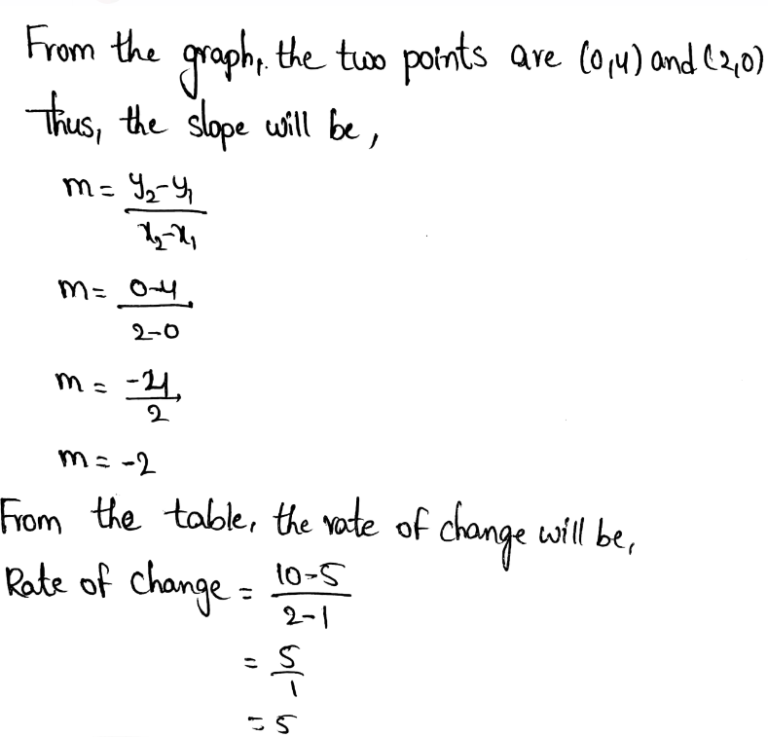 From the graph, the two points are (0,4) and (2,0)
Thus, the slope will be,
m = y₂-y₁
x₂-x₁
m = 0-4
2-0
m = -4
2
m = -2
From the table, the rate of change will be,
Rate of change = 10-5
2-1
= 5
1
= 5